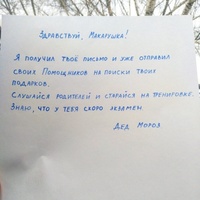 Здравствуй, Макарушка!
Я получил твоё письмо и уже отправил
своих Помощников на поиски твоих
подарков.
Слушайся родителей и старайся на тренировке.
Знаю, что у тебя скоро экзамен.
Дед Мороз